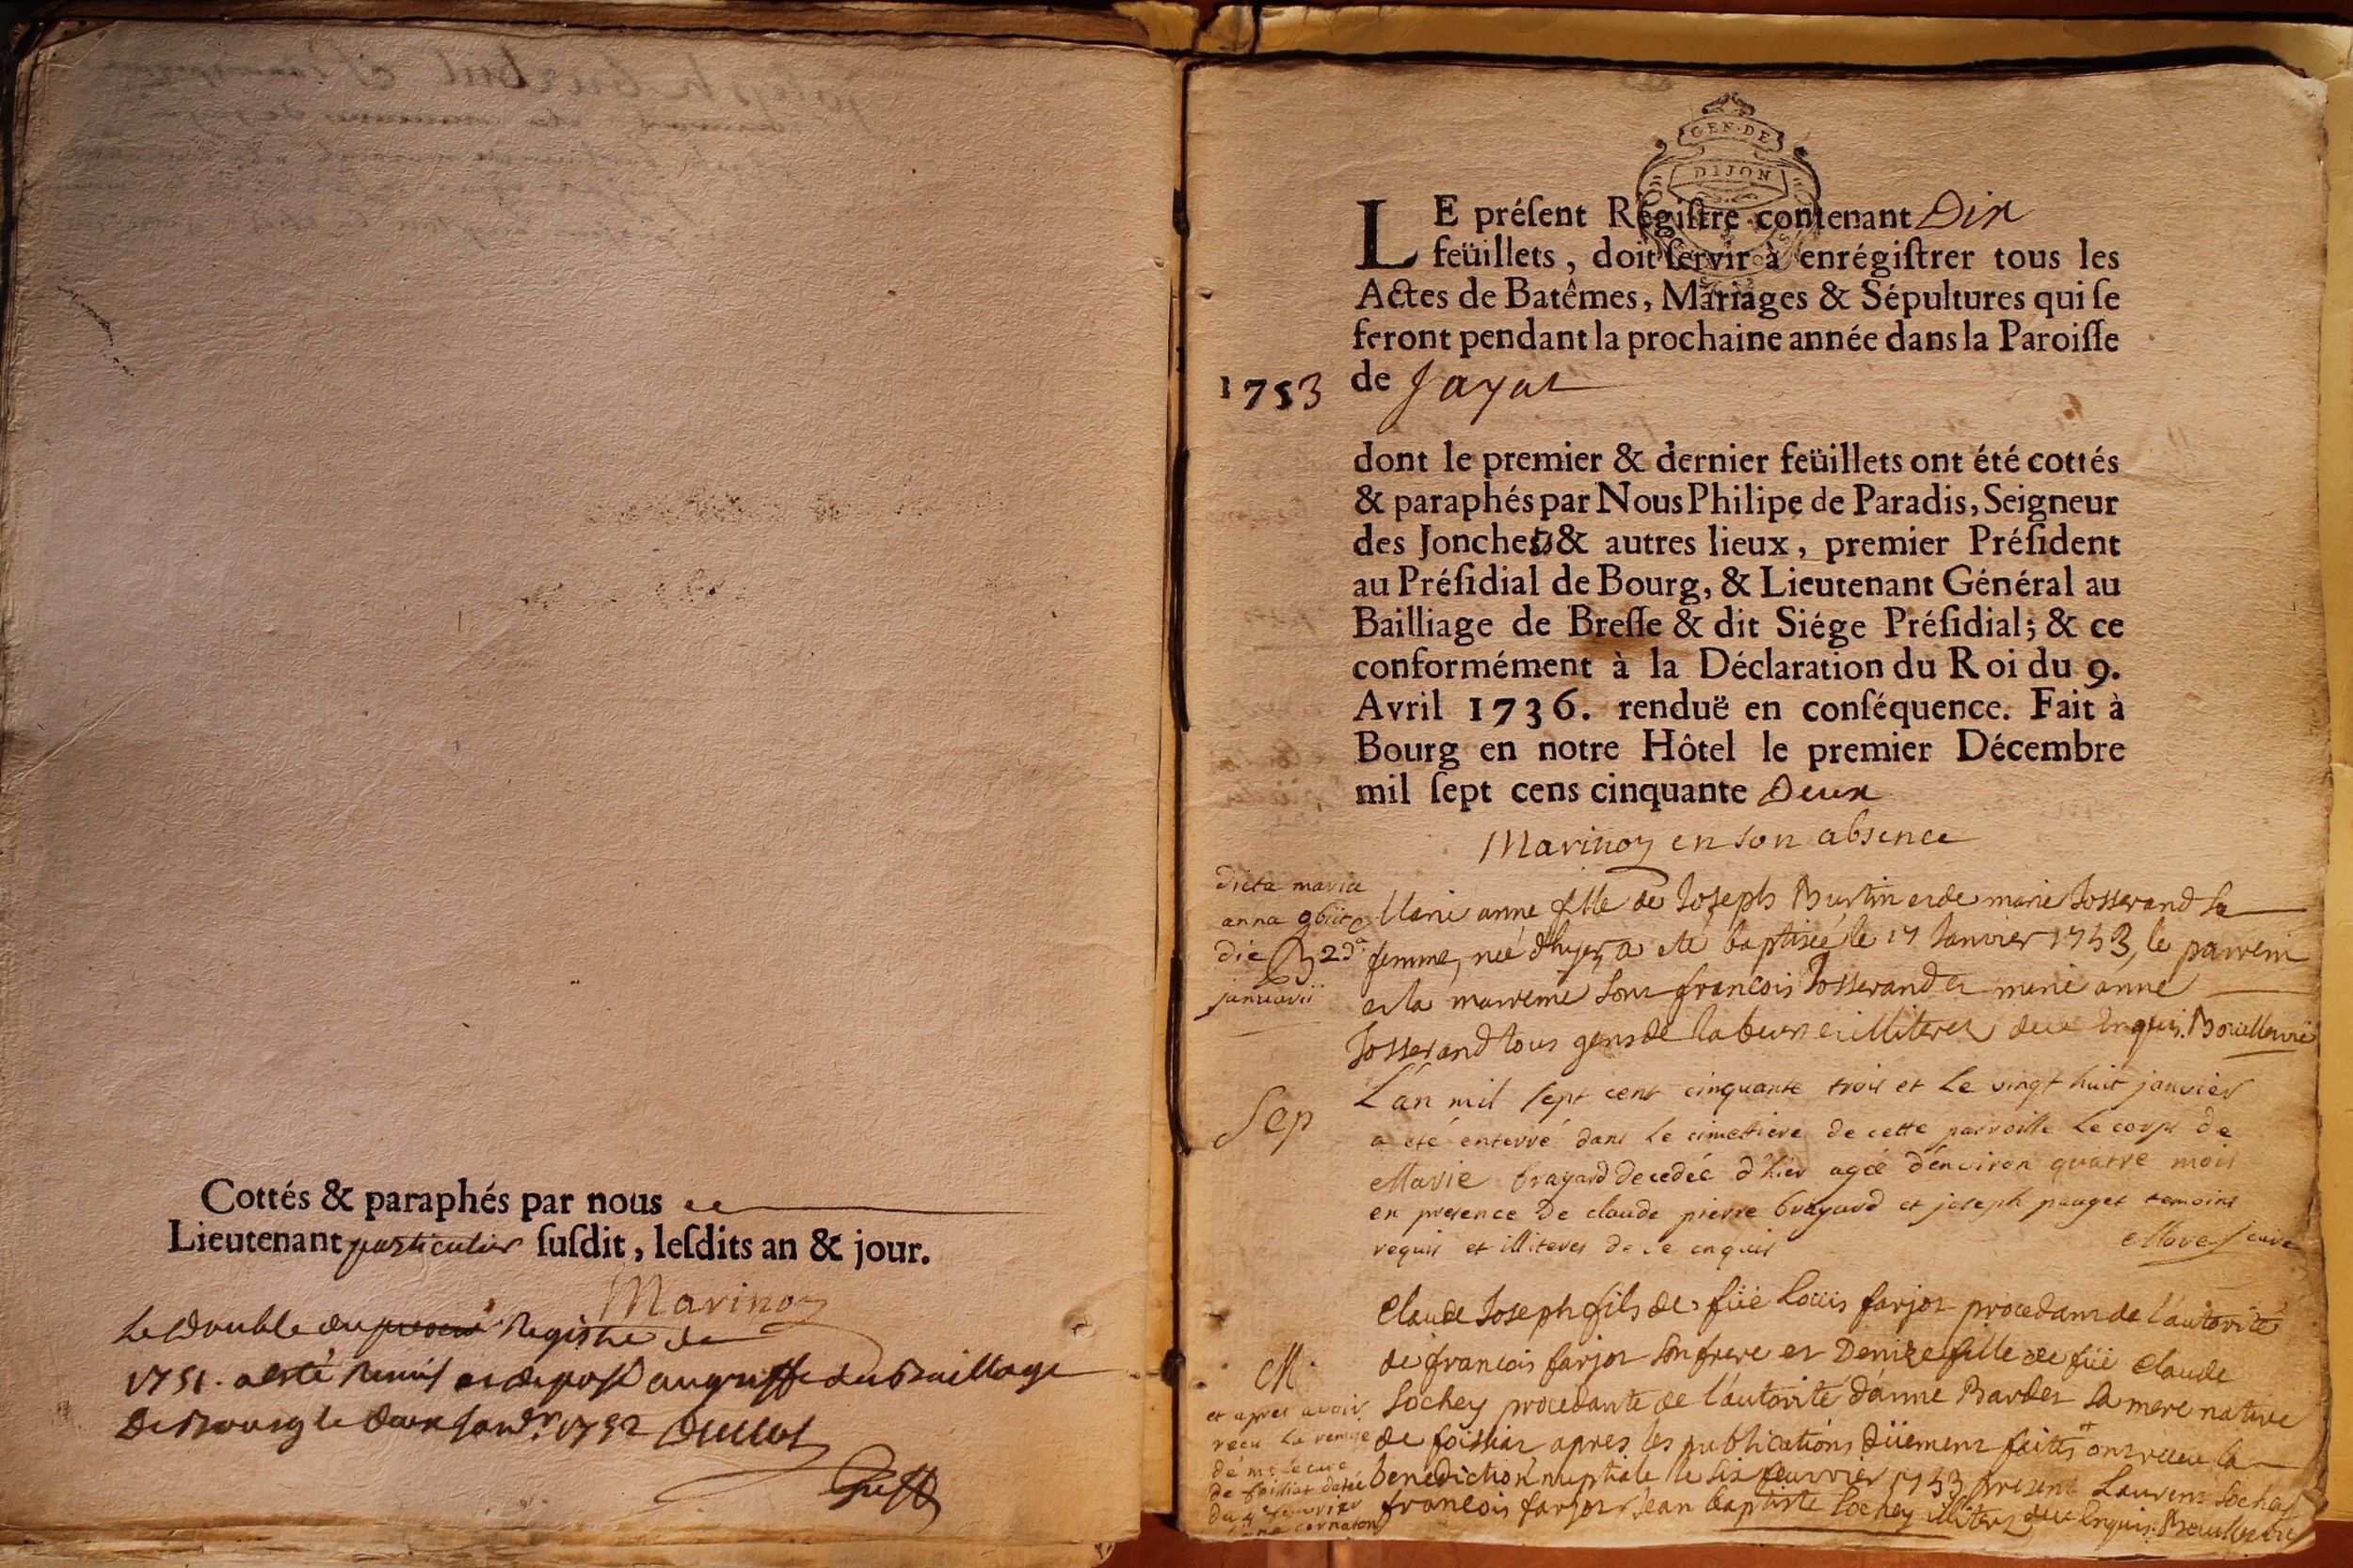 Cottés & paraphés par nous ce
Lieutenant particulier ſuſdit, leſdits an & jour.
Marinon
Le double du present Registre de
1751. a esté Remis et deposé au greffe du Bailliage
De Bourg le deux janv.r 1752
Greff
GEN·DE
DIJON
LE préſent Régiſtre contenant Dix
feüillets, doit ſervir à enrégiſtrer tous les
Actes de Batêmes, Mariages & Sépultures qui ſe
feront pendant la prochaine année dans la Paroiſſe
1753 de Jayat
dont le premier & dernier feüillets ont été cottés
& paraphés par Nous Philipe de Paradis, Seigneur
des Jonches & autres lieux, premier Préſident
au Préſidial de Bourg, & Lieutenant Général au
Bailliage de Breſſe & dit Siége Préſidial; & ce
conformément à la Déclaration du Roi du 9.
Avril 1736. renduë en conſéquence. Fait à
Bourg en notre Hôtel le premier Décembre
mil ſept cens cinquante Deux
Marinon en son absence
dicta maria
anna obiit
die 23a
januarii
Marie anne fille de Joseph Burtin et de marie Josserand sa
femme, neé d'hyer a eté baptiseé le 17 Janvier 1753, le parrein
et la marreine sont francois Josserand et marie anne
Josserand tous gens de labeur et illiteres de ce Enquis.
Sep
L'an mil sept cent cinquante trois et le vingt huit janvier
a eté enterré dans le cimetiere de cette parroisse le corps de
Marie brayard decedeé d'hier ageé d'environ quatre mois
en presence de claude pierre brayard et joseph pauget temoins
requis et illiteres de ce enquis
More curé
M.
Claude Joseph fils de füe Loüis farjot procedant de l'autorité
de francois farjot son frere et Denize fille de füe Claude
Sochey procedante de l'autorité d'anne Bardet sa mere native
de foissiat apres les publications düement faittes ont receu la
benediction nuptiale le six feuvrier 1753 present Laurent Sochey
francois farjot Jean baptiste Sochey illiteres de ce Enquis.
et apres avoir
recu la remise
de mr le curé
de foissiat dateé
du 4e fevrier